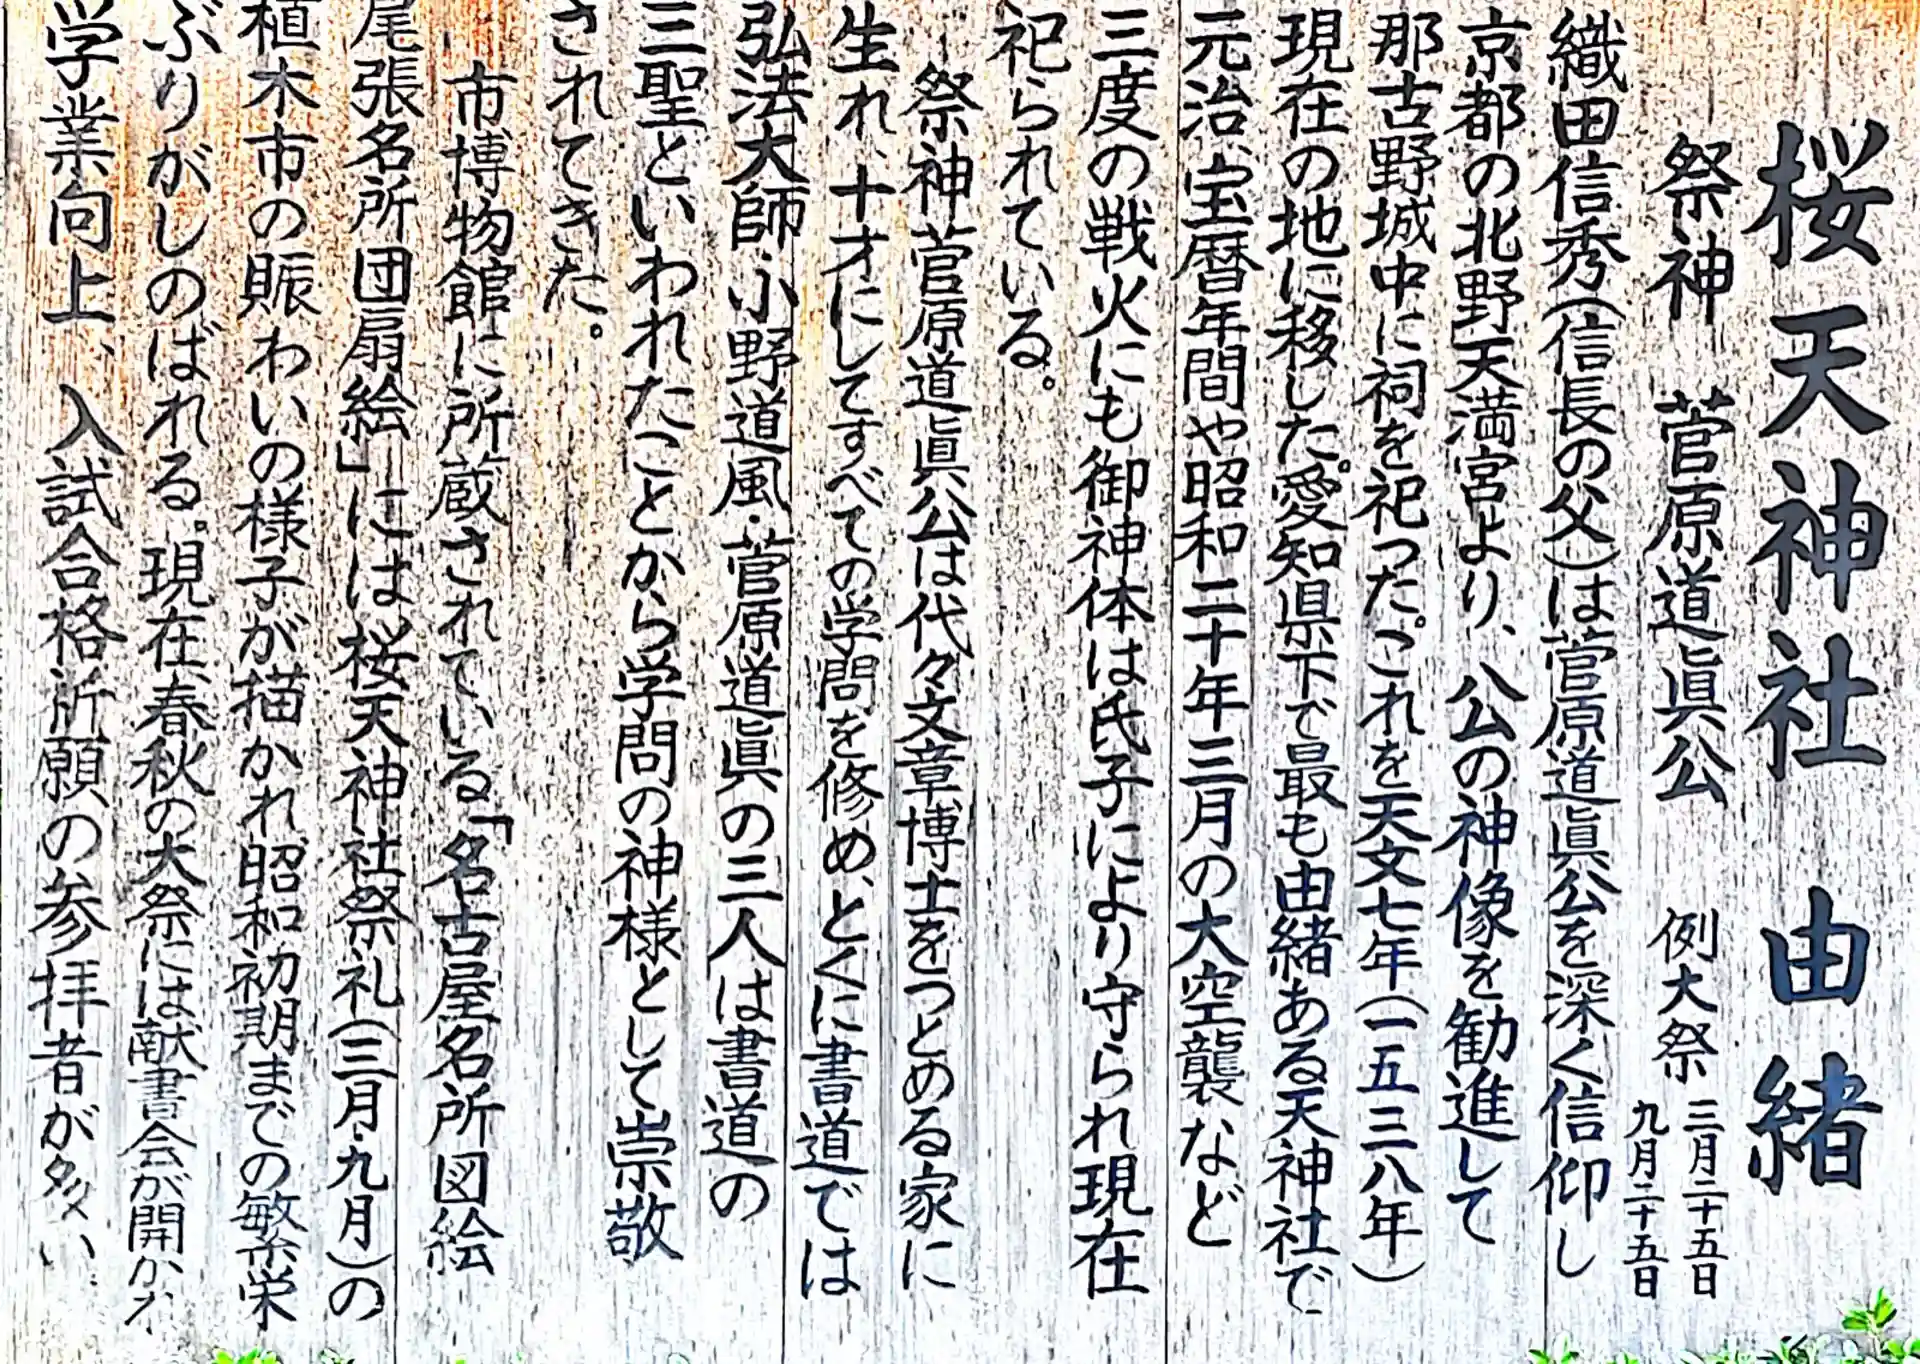 桜天神社 由緒
祭神 菅原道眞公 例大祭 三月二十五日
九月二十五日
織田信秀(信長の父)は菅原道眞公を深く信仰し
京都の北野天満宮より、公の神像を勧進して
那古野城中に祠を祀った。これを天文七年(一五三八年)
現在の地に移した。愛知県下で最も由緒ある天神社で
元治、宝暦年間や昭和二十年三月の大空襲など
三度の戦火にも御神体は氏子により守られ現在
祀られている。
祭神菅原道眞公は代々文章博士をつとめる家に
生れ、十才にしてすべての学問を修め、とくに書道では
弘法大師・小野道風・菅原道眞の三人は書道の
三聖といわれたことから学問の神様として崇敬
されてきた。
市博物館に所蔵されている「名古屋名所図絵
尾張名所団扇絵」には桜天神社祭礼(三月・九月)の
植木市の賑わいの様子が描かれ、昭和初期までの繁栄
ぶりがしのばれる。現在、春秋の大祭には献書会が開かれ
学業向上、入試合格祈願の参拝者が多い